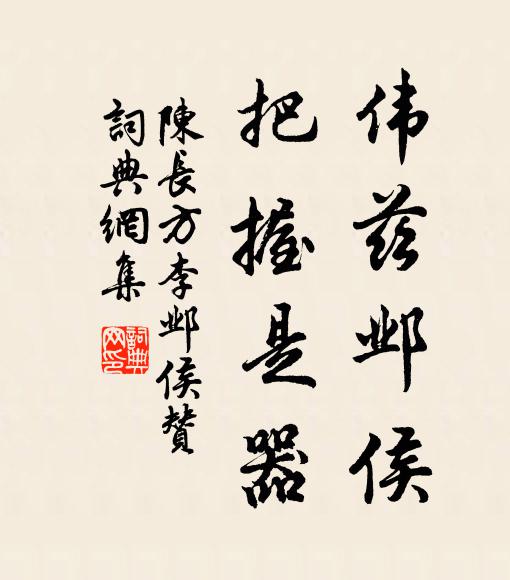 伟兹邺侯
把握是器
陳長方李邺侯贊
詞典網集
詞典网印